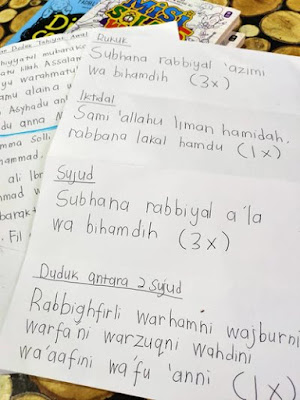 Rukuk
Subhana rabbiyal 'azimi
wa bihamdih (3x)
Iktidal
Sami 'allahu liman hamidah.
rabbana lakal hamdu (1x)
Sujud
Subhana rabbiyal a'la
wa bihamdih (3x)
Duduk antara 2 sujud
Rabbighfirli warhamni wajburni
warfa'ni warzuqni wahdini
wa'aafini wa'fu 'anni (1x)
Duduk Tahiyat Awal
hiyyatul mubaraka
Assalam
warahmatu
alaina w
Asyhadu an
anna
ali Ibr
Fil